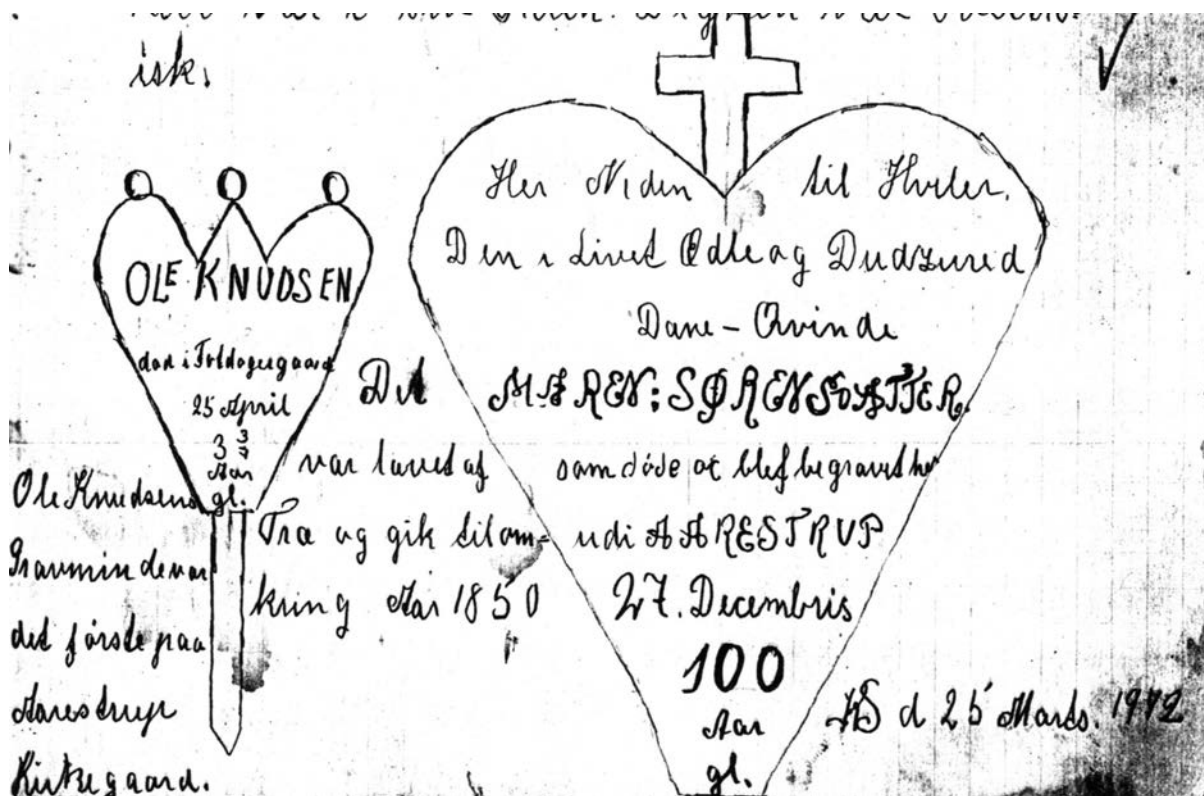 isk.
OLE KNUDSEN
død i Foldagergaard
25 April
Aar
gl.
Ole Knudsens
Gravminde var
det første paa
Aarestrup
Kirkegaard.
Det
var lavet af
Træ og gik til om=
kring Aar 1850
Her Neden til Hviler.
Den i Livet Ædle og Dudzired
Dane - Qvinde
MAREN: SØRENSDATTER.
som døde oc blef begravet her
udi AARESTRUP
27. Decembris
100
Aar
gl.
d 25 Marts. 1972